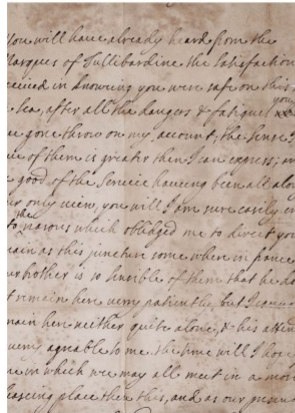 You will have already heard from the
Marques of Tullibardine the Satisfaction
received in knowing you were safe on this
sea, after all the dangers & fatigues you
have gone throw on my account; the sense I
have of them is greater then I can express; and
the good of the Service haveing been all along
our only view, you will I am sure easily en
to the reasons which obliedged me to direct you
remain at this juncture some where in france
your brother is so sensible of them that he do
not remain here very patiently, but I can
remain here neither quite alone, & his atten
very agreable to me, the time will I hope
in which we may all meet in a more
pleasing place then this, and as our present